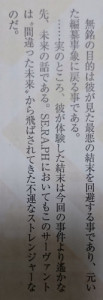 無銘の目的は彼が見た最悪の結末を回避する事であり、元い
た編纂事象に戻る事である。
……実のところ、彼が体験した結末は今回の事件より遙かな
先、未来の話である。SE.RA.PHにおいてもこのサーヴァント
は〝間違った未来〟から飛ばされてきた不運なストレンジャーな
のだ。